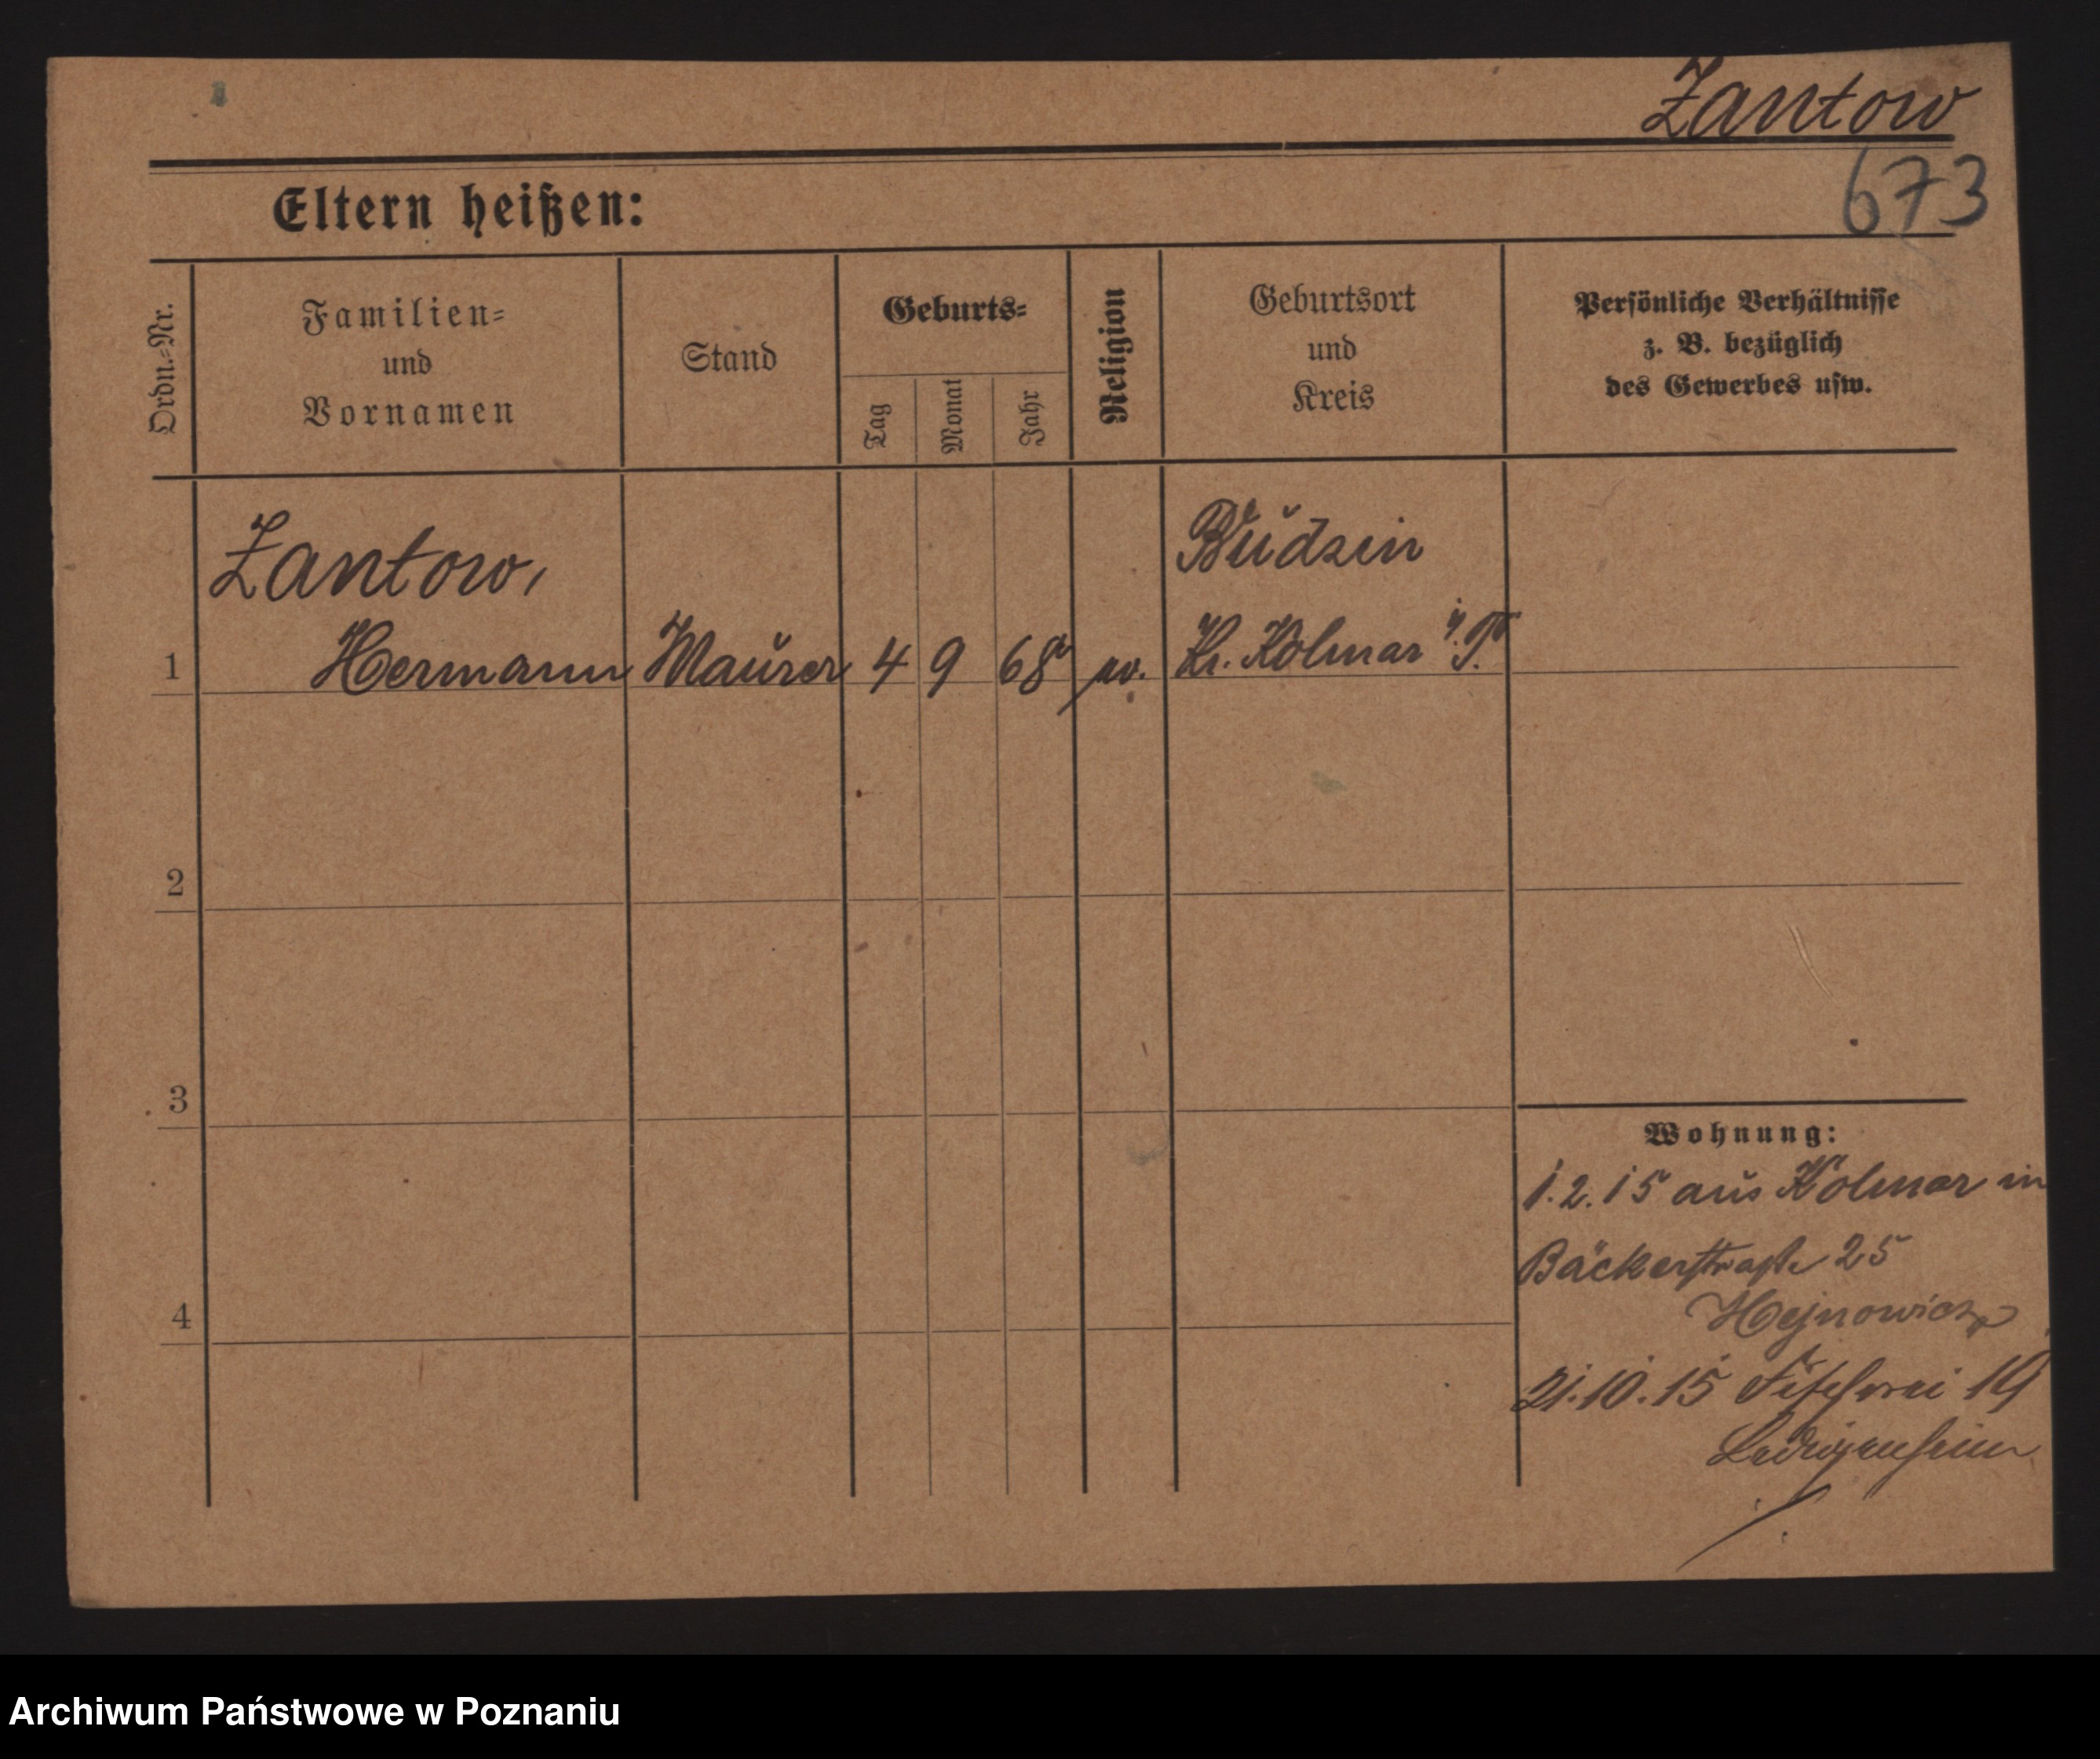 Zantow
673
Eltern heißen:
Ordn.-Nr.
Familien-
und
Vornamen
Stand
Geburts-
Tag
Monat
Jahr
Religion
Geburtsort
und
Kreis
Persönliche Verhältnisse
z. B. bezüglich
des Gewerbes usw.
Zantow,
Budzin
1 Hermann Maurer 4 9 68 ev. Kr. Kolmar i. P.
2
3
Wohnung:
1.2.15 aus Kolmar in
Bäckerstraße 25
Hejnowicz
4
21.10.15 Fischerei 19